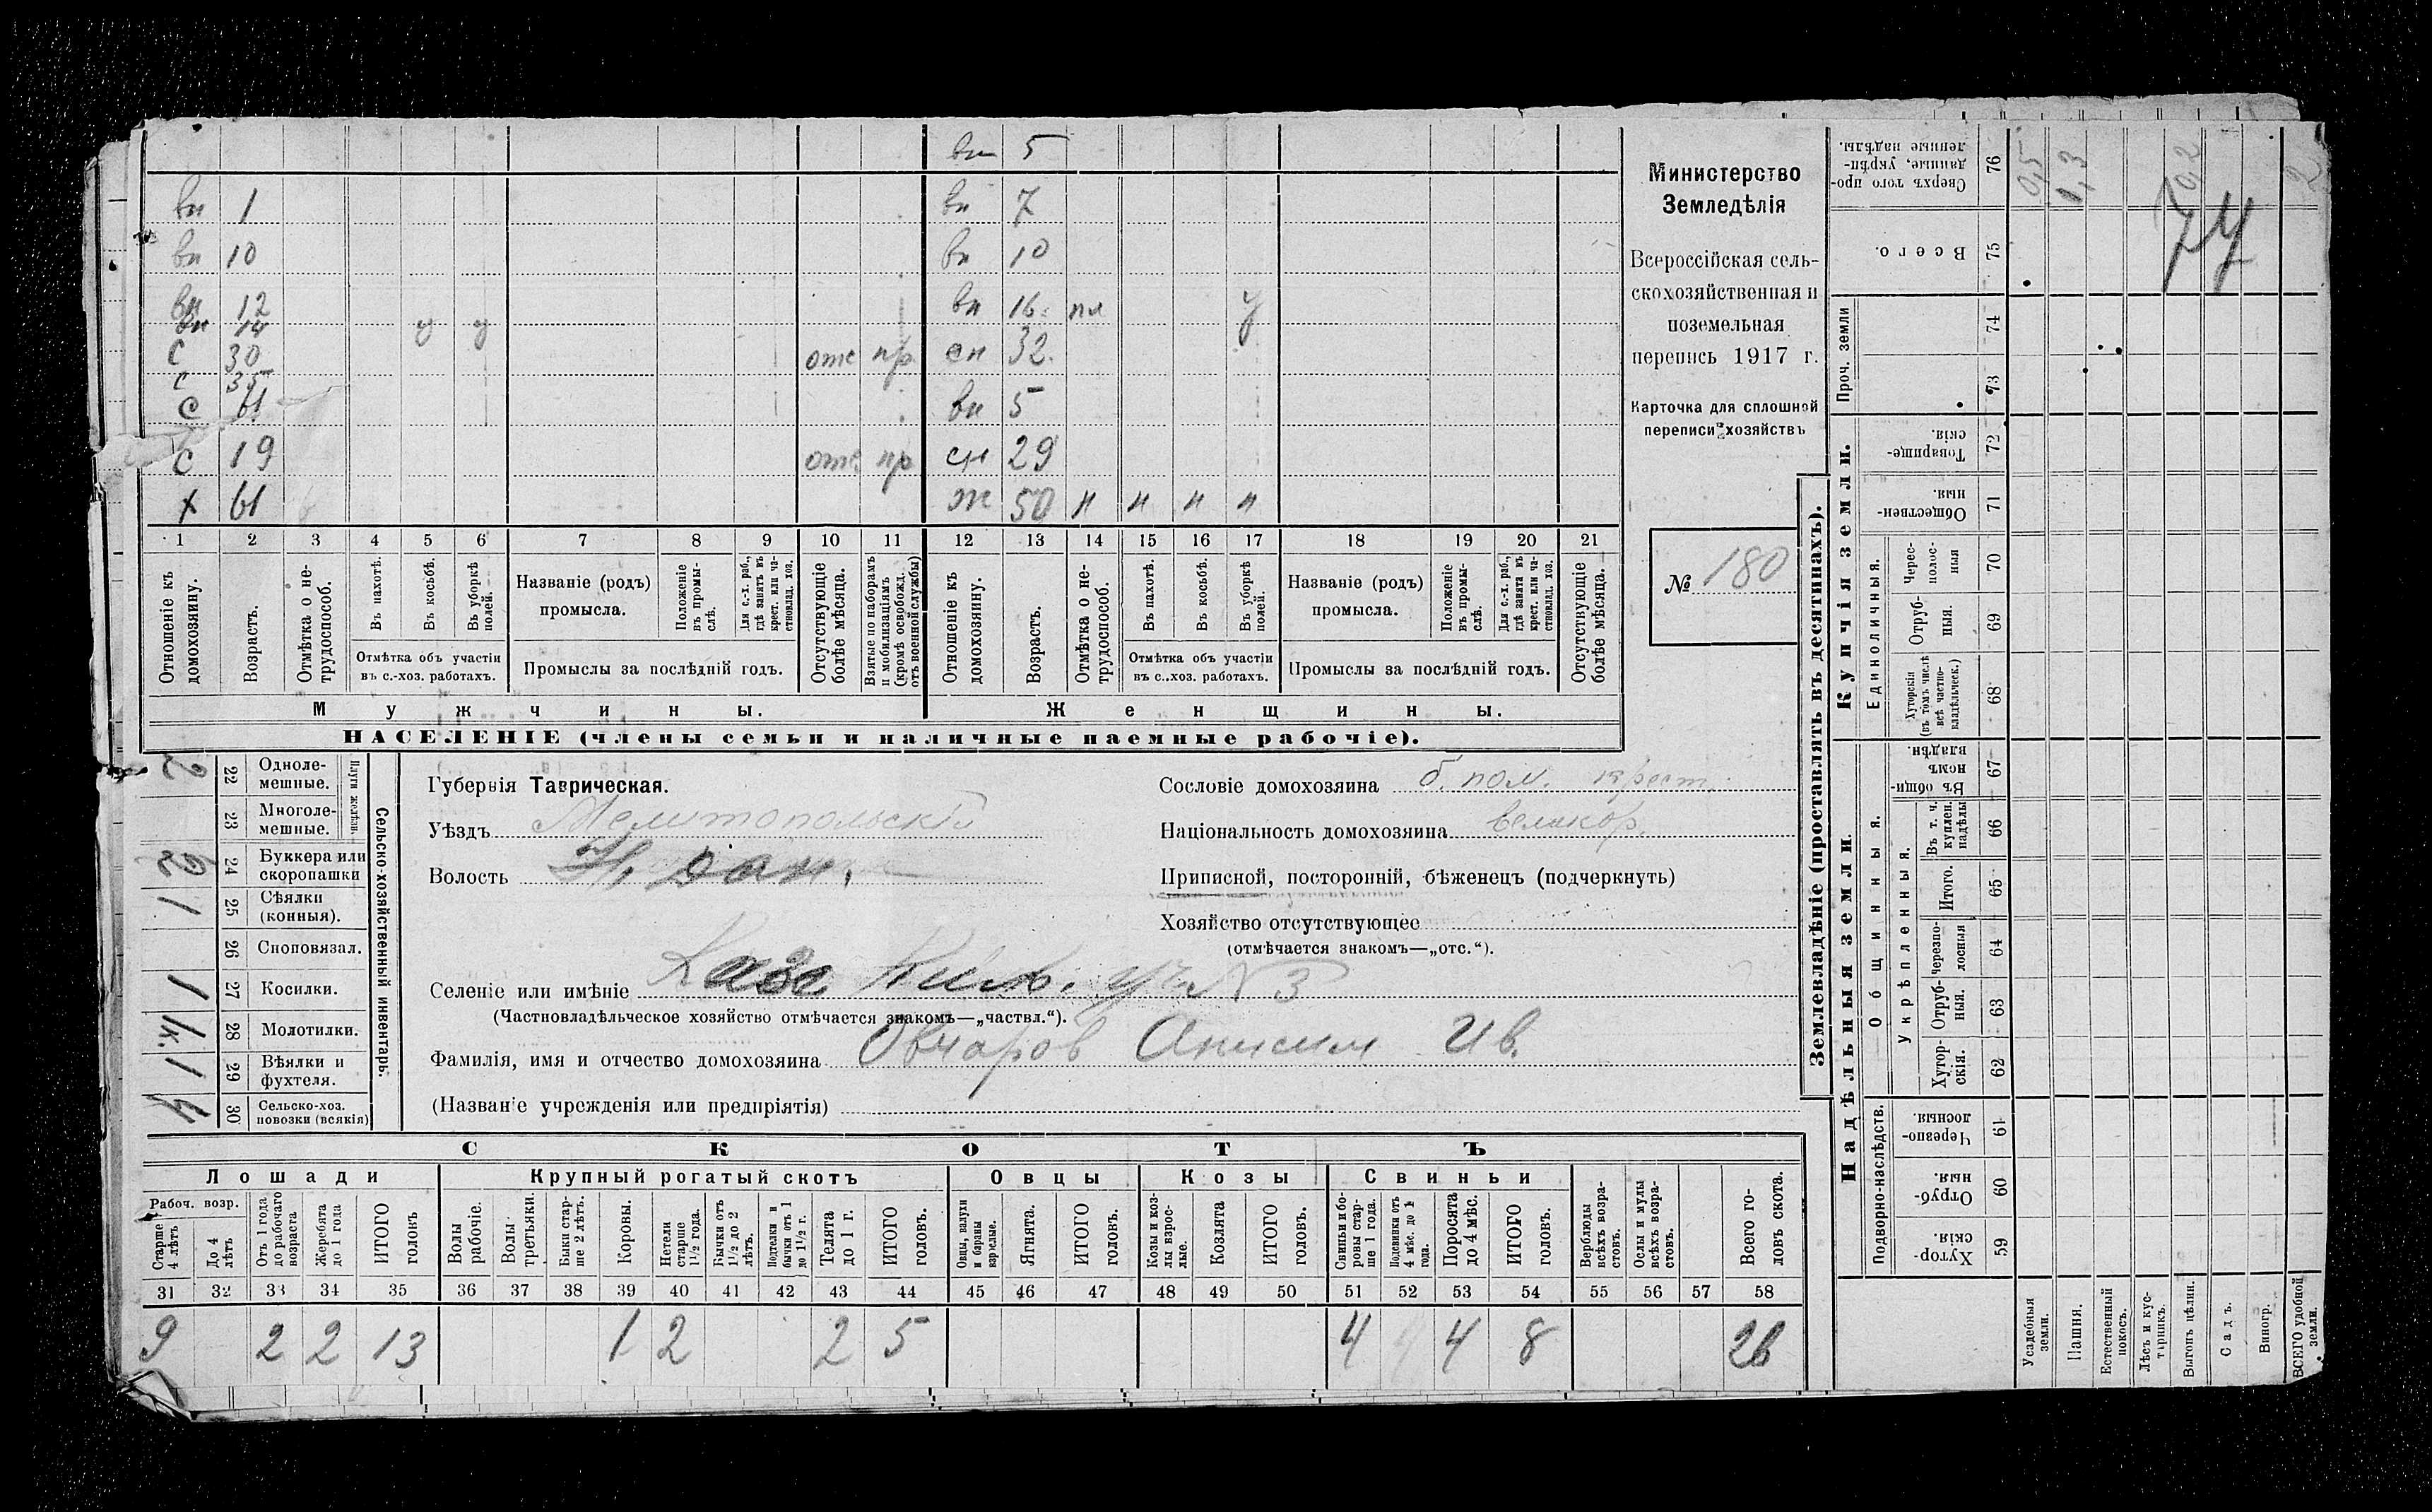 вн 5
вн 1 вн 7
вн 10 вн 10
вн 12 вн 16 пл у
вн 14 у у
с 30 отс пр сн 32
с 35
с 61 вн 5
с 19 отс пр сн 29
х 61 ж 50 н н н н
1 2 3 4 5 6 7 8 9 10 11 12 13 14 15 16 17 18 19 20 21
Отношеніе къ домохозяину.
Возрастъ.
Отмѣтка о не-трудоспособ.
Въ пахотѣ.
Въ косьбѣ.
Въ уборкѣ полей.
Отмѣтка объ участіи въ с.-хоз. работахъ.
Названіе (родъ) промысла.
Положеніе въ промы-слѣ.
Для с.-х. раб., гдѣ занятъ въ крест. или ча-стновлад. хоз.
Промыслы за послѣдній годъ.
Отсутствующіе болѣе мѣсяца.
Взятые по наборамъ и мобилизаціямъ (кромѣ освобожд. отъ военной службы)
Отношеніе къ домохозяину.
Возрастъ.
Отмѣтка о не-трудоспособ.
Въ пахотѣ.
Въ косьбѣ.
Въ уборкѣ полей.
Отмѣтка объ участіи въ с..хоз. работахъ.
Названіе (родъ) промысла.
Положеніе въ промы-слѣ.
Для с.-х. раб., гдѣ занята въ крест. или ча-стновлад. хоз.
Промыслы за послѣдній годъ.
Отсутствующіе болѣе мѣсяца.
Мужчины.
Женщины.
НАСЕЛЕНІЕ (члены семьи и наличные наемные рабочіе).
Министерство
Земледѣлія
Всероссійская сель-
скохозяйственная и
поземельная
перепись 1917 г.
Карточка для сплошной
переписи хозяйствъ
№ 180
Сельско-хозяйственный инвентарь.
Плуги желѣзн
22 Одноле-мешные. 2
23 Многоле-мешные.
24 Буккера или скоропашки
25 Сѣялки (конныя). 1
26 Сноповязал.
27 Косилки. 1
28 Молотилки. 1к.
29 Вѣялки и фухтеля. 1
30 Сельско-хоз. повозки (всякія) 4
Губернія Таврическая.
Уѣздъ Мелитопольскій
Волость Н. Дан.
Селеніе или имѣніе Каза Кильв. уч N 3
(Частновладѣльческое хозяйство отмѣчается знакомъ—„частвл.“).
Фамилія, имя и отчество домохозяина Овчаров Анисим Ив.
(Названіе учрежденія или предпріятія)
Сословіе домохозяина б. пом. крест.
Національность домохозяина великор.
Приписной, посторонній, бѣженецъ (подчеркнуть)
Хозяйство отсутствующее
(отмѣчается знакомъ—„отс.“).
СКОТЪ
Лошади Крупный рогатый скотъ Овцы Козы Свиньи
Рабоч. возр.
Старше 4 лѣтъ
До 4 лѣтъ
Отъ 1 года до рабочаго возраста
Жеребята до 1 года
ИТОГО головъ
Волы рабочіе.
Волы третьяки.
Быки стар-ше 2 лѣтъ.
Коровы.
Нетели старше 1½ года.
Бычки отъ 1½ до 2 лѣтъ.
Подтелки и бычки отъ 1 до 1½ г.
Телята до 1 г.
ИТОГО головъ.
Овцы, валухи и бараны взрослые.
Ягнята.
ИТОГО головъ.
Козы и коз-лы взрос-лые.
Козлята
ИТОГО головъ.
Свиньи и бо-ровы стар-ше 1 года.
Подсвинки отъ 4 мѣс. до 1 года.
Поросята до 4 мѣс.
ИТОГО головъ.
Верблюды всѣхъ возра-стовъ.
Ослы и мулы всѣхъ возра-стовъ.
Всего го-ловъ скота.
31 32 33 34 35 36 37 38 39 40 41 42 43 44 45 46 47 48 49 50 51 52 53 54 55 56 57 58
9 2 2 13 1 2 2 5 4 4 8 26
Землевладѣніе (проставлять въ десятинахъ).
Купчія земли.
Надѣльныя земли.
Сверхъ того про-данные, укрѣп-ленные надѣлы. 76 0,5 1,3 0,2 2
Всего. 75 74
Проч. земли 74 73
Товарище-скія. 72
Обществен-ныя. 71
Единоличныя.
Черес-полос-ныя 70
Отруб-ныя. 69
Хуторскія (въ томъ числѣ всѣ частно-владѣльческ.) 68
Общинныя.
Въ общин-номъ владѣн. 67
Укрѣпленныя.
Въ т. ч. куплен. надѣлы 66
Итого. 65
Черезпо-лосныя 64
Отруб-ныя. 63
Хутор-скія. 62
Подворно-наслѣдств.
Черезпо-лосныя 61
Отруб-ныя. 60
Хутор-скія. 59
Усадебныя земли.
Пашня.
Естественный покосъ.
Лѣсъ и кус-тарникъ.
Выгонъ цѣлин.
Садъ.
Виногр.
ВСЕГО удобной земли.